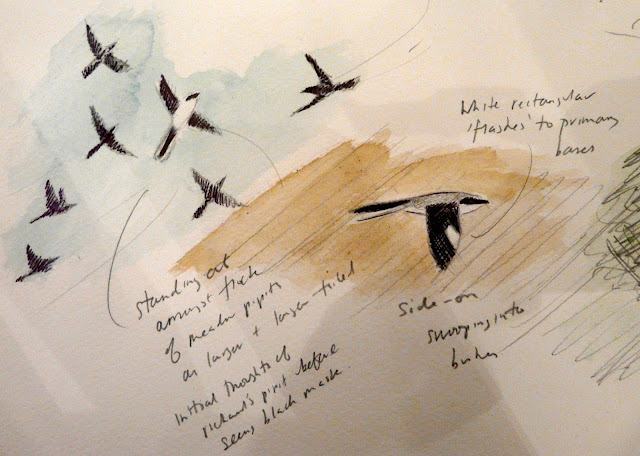 standing out
amongst flock
of meadow pipits
as larger + longer tailed
initial thoughts of
richard's pipit before
seeing black mask.
White rectangular
'flashes' to primary
bases
Side-on
swooping into
bushes